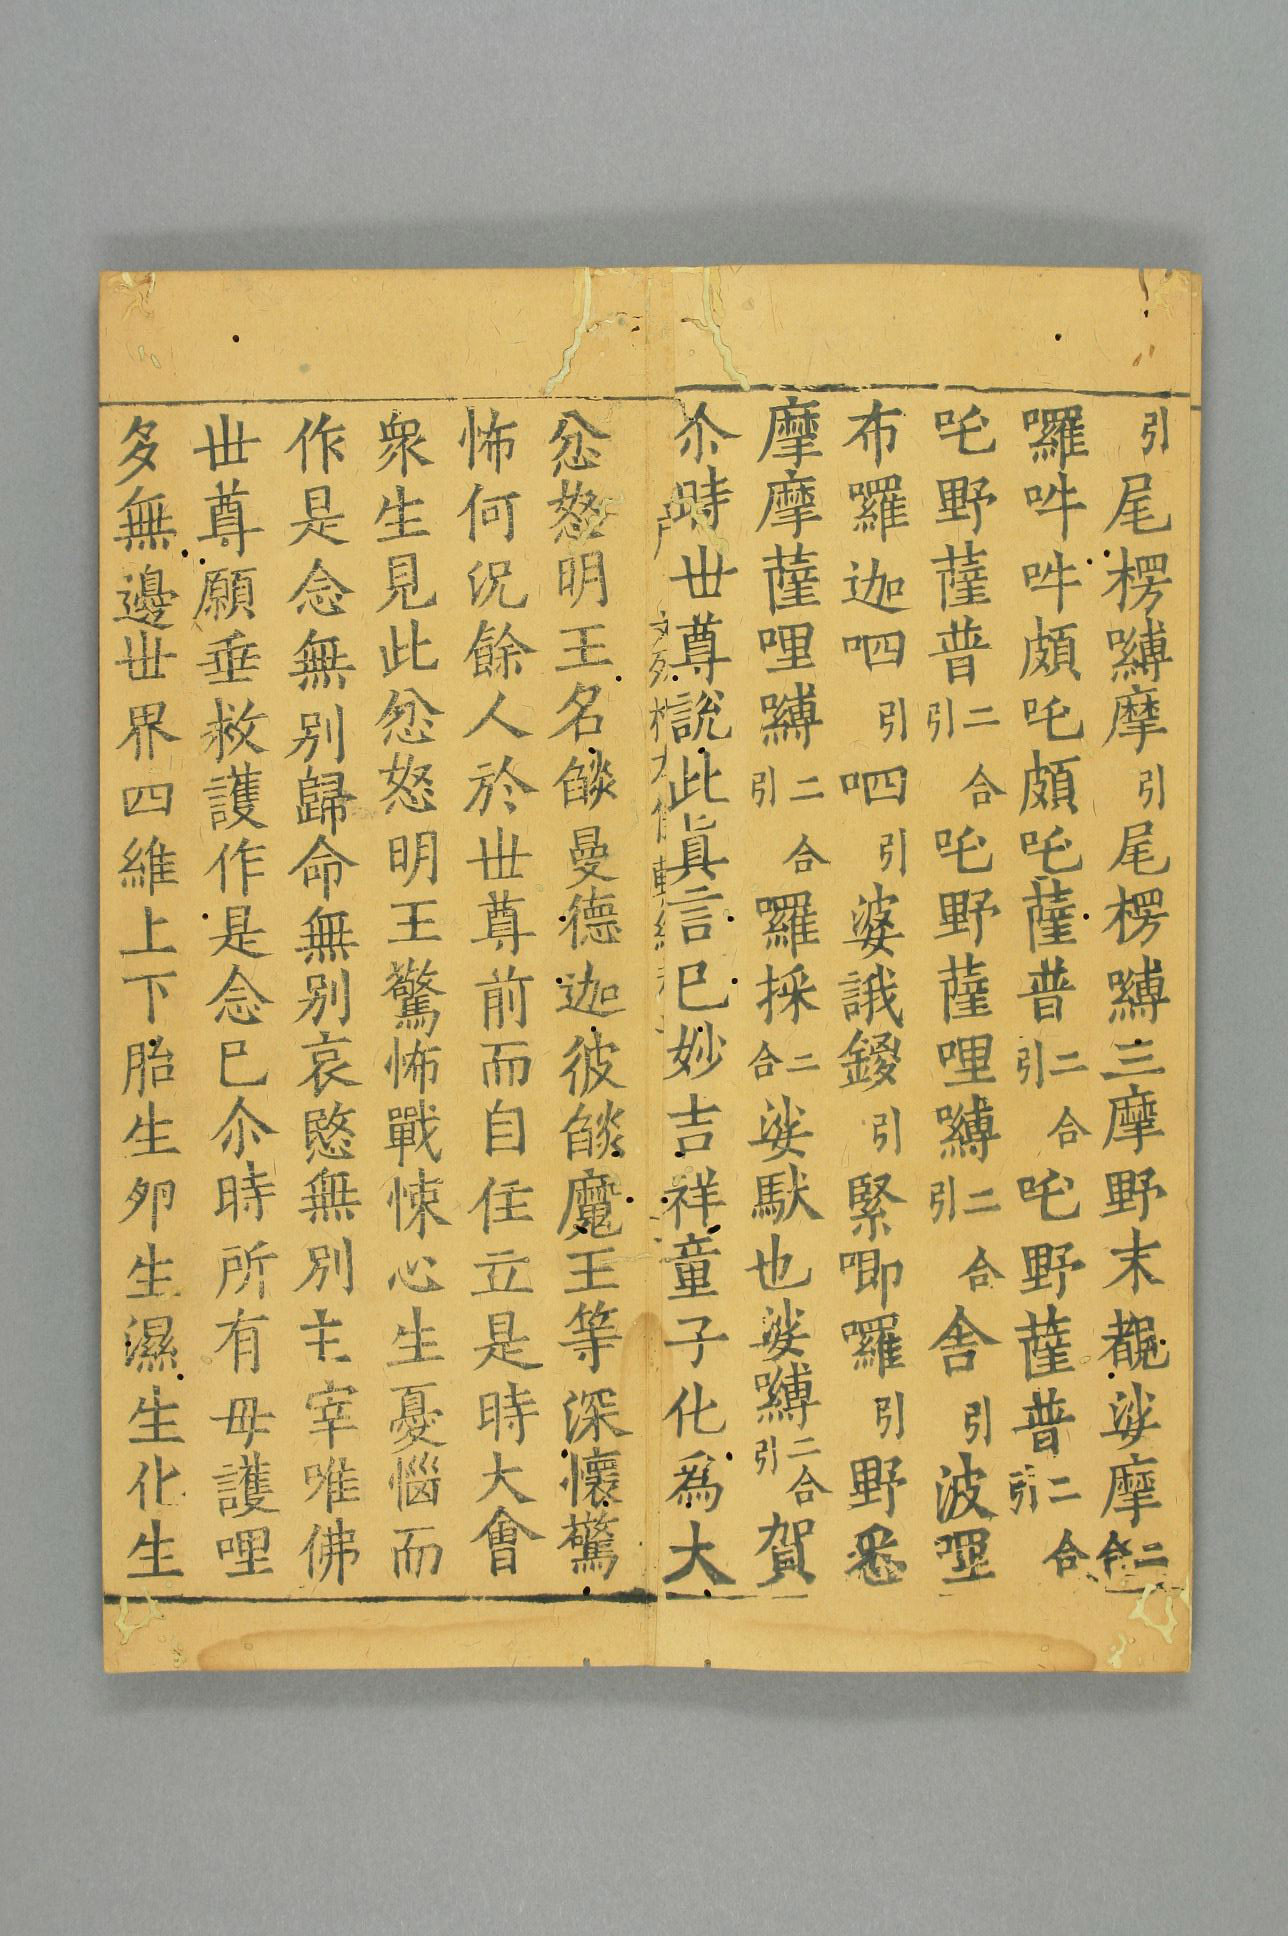 引尾楞嚩摩引尾楞嚩三摩野末覩娑摩二合
囉吽吽頗吒頗吒薩普二合引吒野薩普二合引
吒野薩普二合引吒野薩哩嚩二合引舍引波哩
布囉迦呬引呬引婆誐鑁引緊唧囉引野悉
摩摩薩哩嚩二合引囉採二合娑馱也娑嚩二合引賀
尒時世尊說此真言已妙吉祥童子化為大
忿怒明王名㷔曼德迦彼㷔魔王等深懷驚
怖何況餘人於世尊前而自住立是時大會
衆生見此忿怒明王驚怖戰悚心生憂惱而
作是念無別歸命無別哀愍無別主宰唯佛
世尊願垂救護作是念已尒時所有毋護哩
多無邊世界四維上下胎生夘生濕生化生